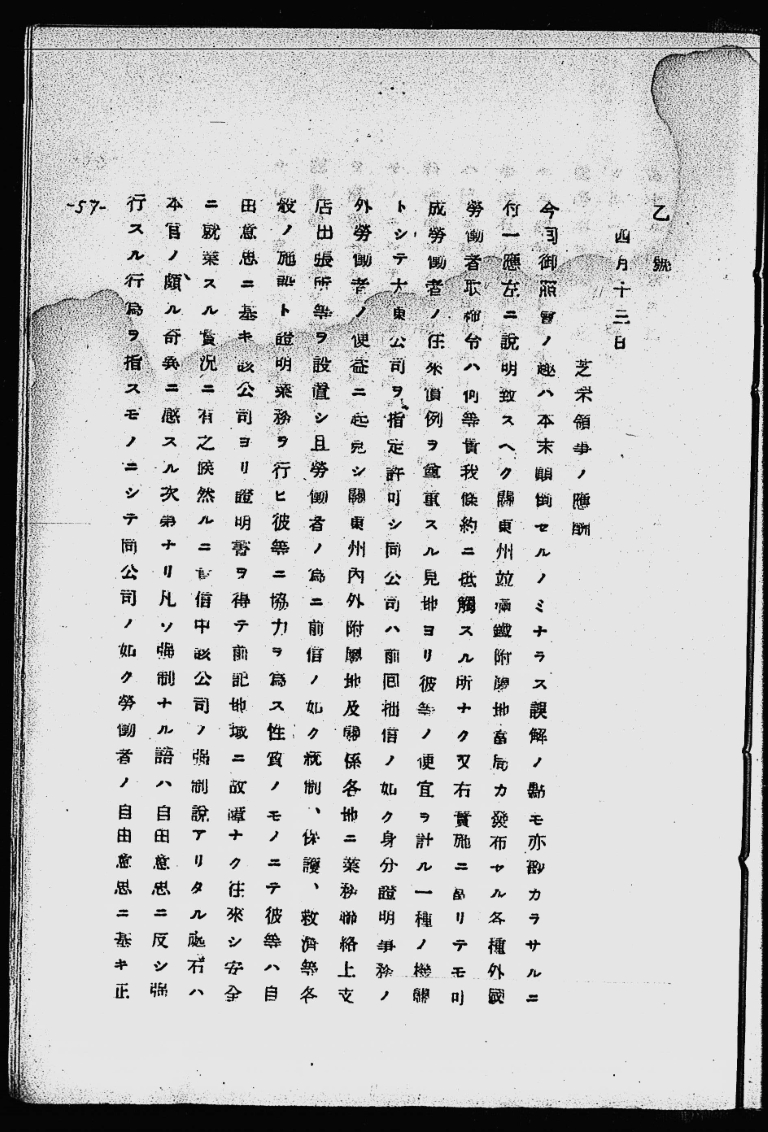 乙號
四月十三日
芝栄領事ノ應酬
今司御照會ノ趣ハ本末顚倒セルノミナラス誤解ノ點モ亦尠カラサルニ
付一應左ニ說明致スヘク關東州竝滿鐵附屬地當局カ發布セル各種外國
勞働者取締令ハ何等貴我條約ニ抵觸スル所ナク又右實施ニ當リテモ可
成勞働者ノ往來慣例ヲ尊重スル見地ヨリ彼等ノ便宜ヲ計ル一種ノ機關
トシテ大東公司ヲ指定許可シ同公司ハ前囘拙信ノ如ク身分證明事務ノ
外勞働者ノ便益ニ起見シ關東州內外附屬地及關係各地ニ業務聯絡上支
店出張所等ヲ設置シ且勞働者ノ爲ニ前信ノ如ク統制、保護、救濟等各
般ノ施設ト證明業務ヲ行ヒ彼等ニ協力ヲ爲ス性質ノモノニテ彼等ハ自
由意思ニ基キ該公司ヨリ證明書ヲ得テ前記地域ニ故障ナク往來シ安全
ニ就業スル實況ニ有之候然ルニ貴信中該公司ノ强制說アリタル趣右ハ
本官ノ頗ル奇異ニ感スル次第ナリ凡ソ强制ナル語ハ自由意思ニ反シ强
行スル行爲ヲ指スモノニシテ同公司ノ如ク勞働者ノ自由意思ニ基キ正
-57-